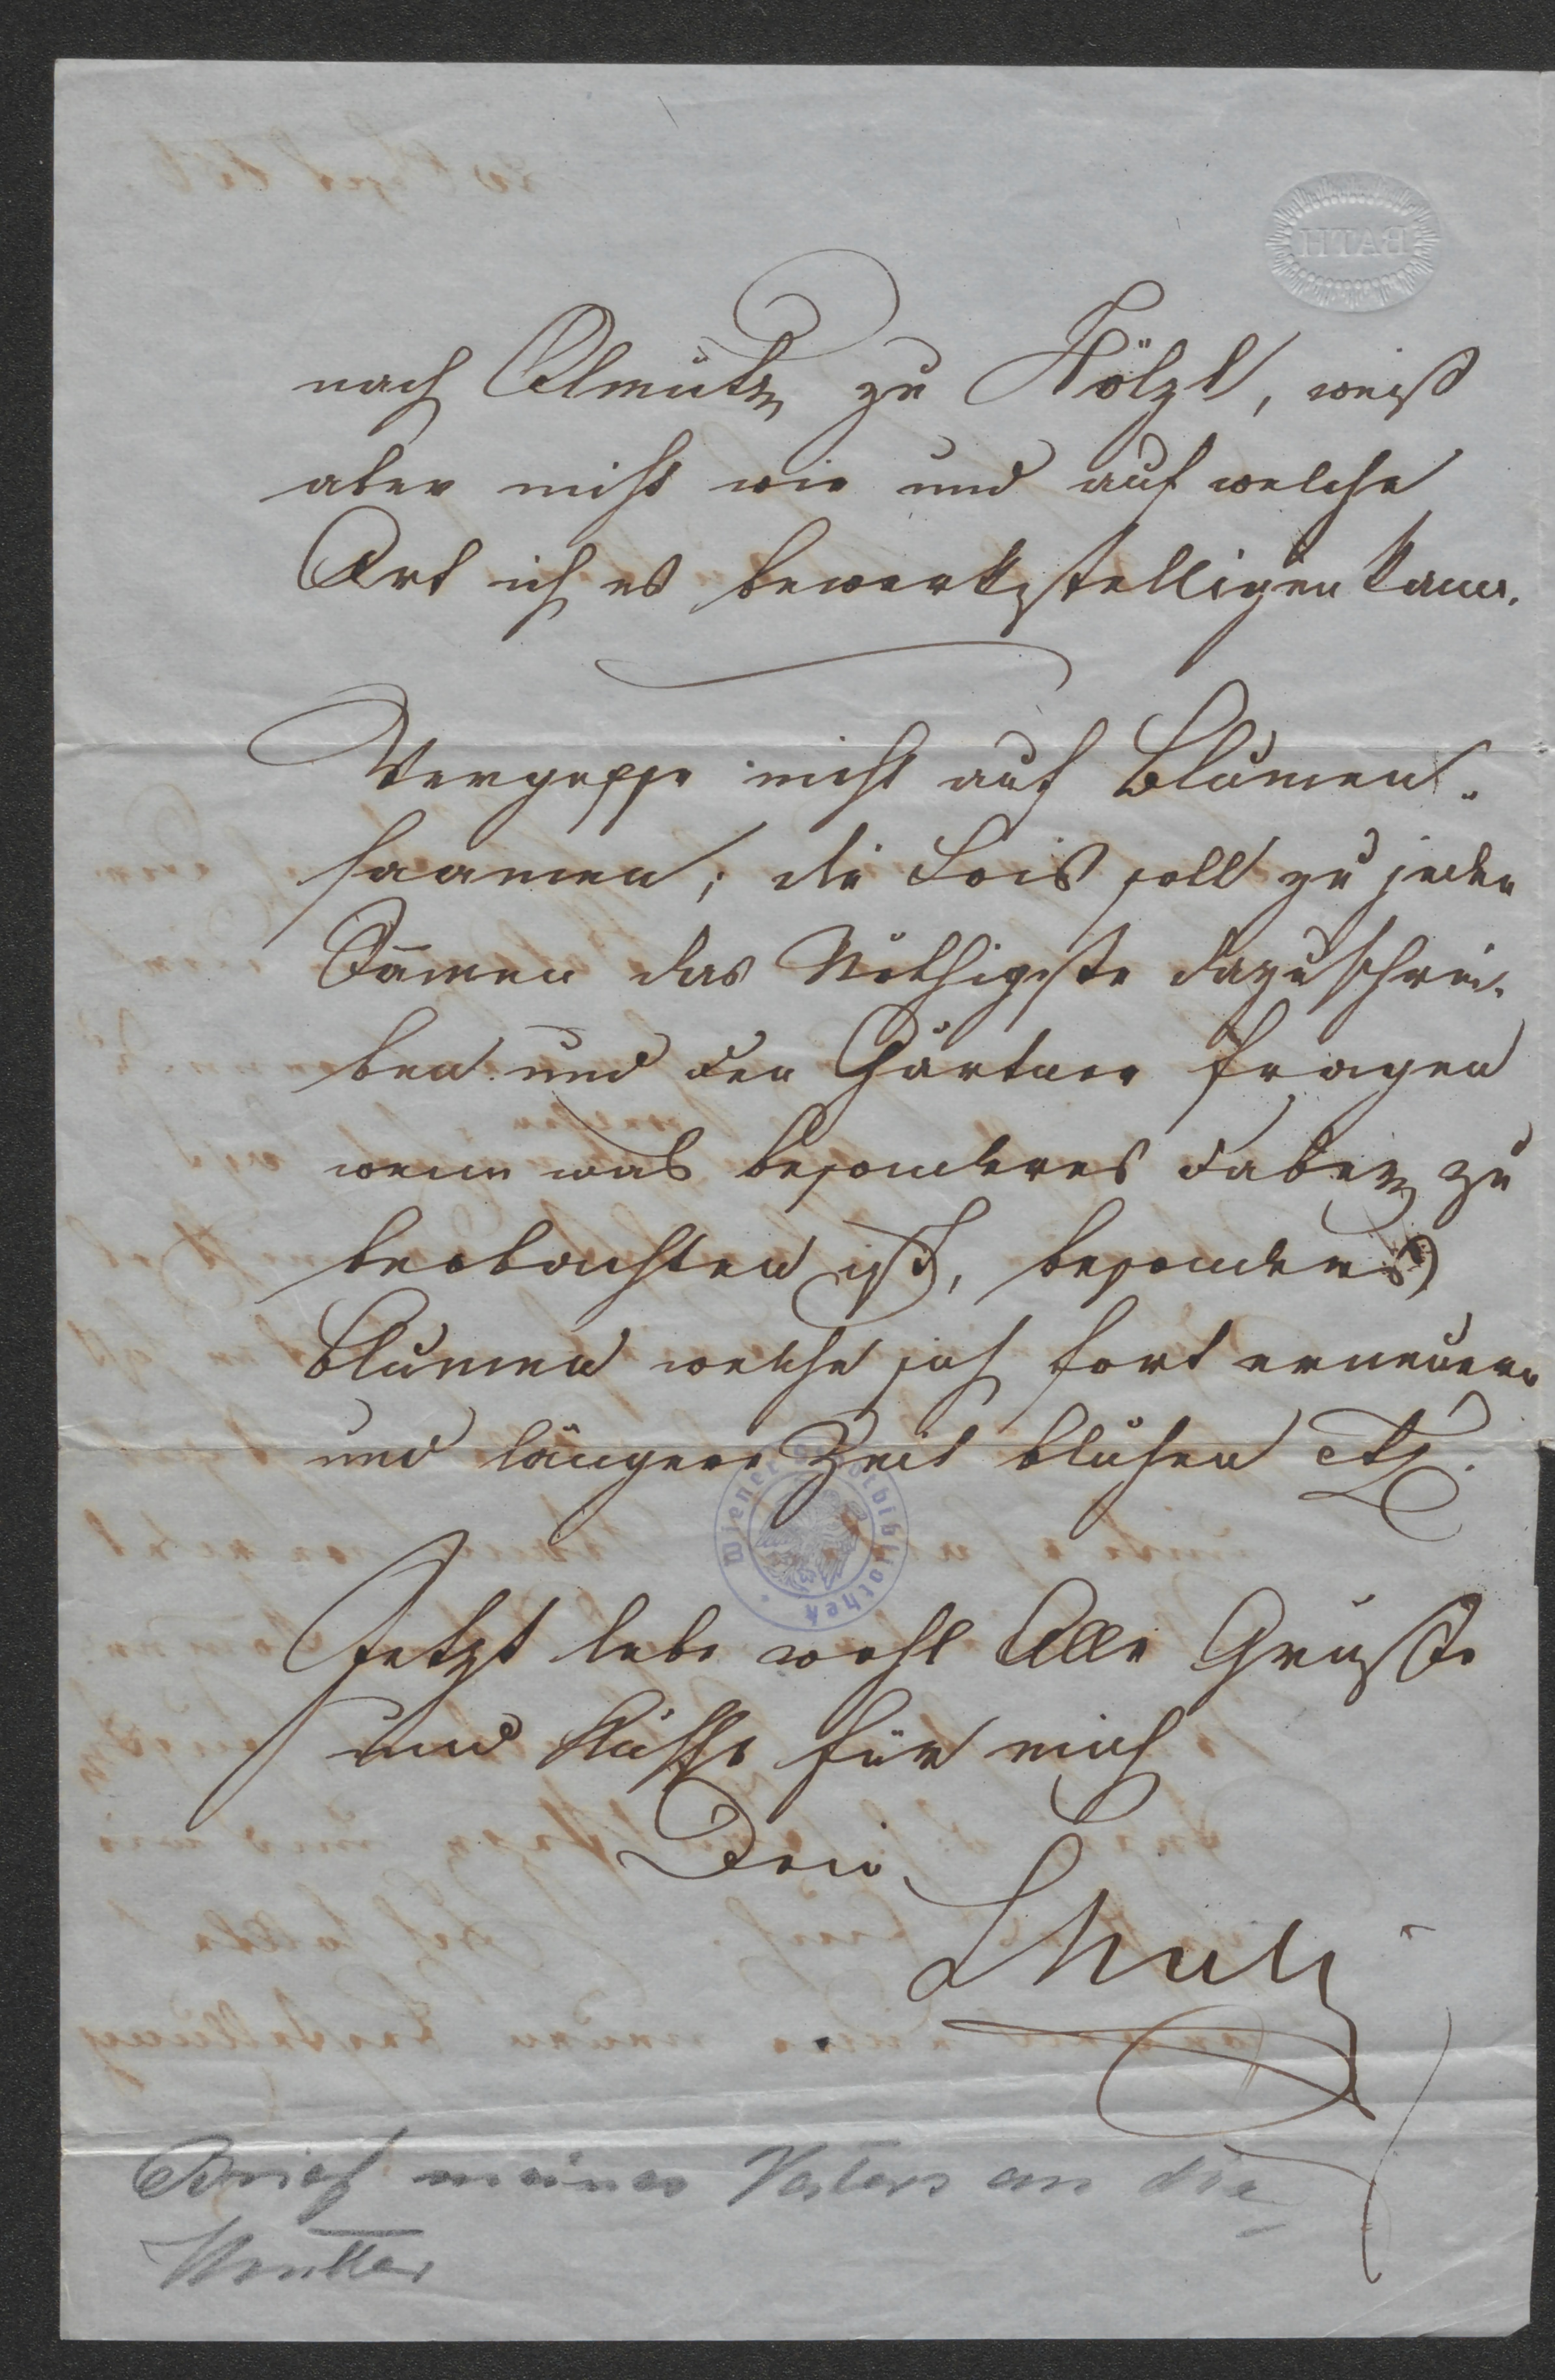 BATH
nach Olmütz zu Hölzl, weiß
aber nicht wie und auf welche
Art ich es bewerkstelligen kann.
Vergesse nicht auf Blumen-
saamen; die Lois soll zu jeden
Sāmen das Nöthigste dazuschrei-
ben und den Gärtner fragen
wenn was besonderes dabey zu
beobachten ist, besonders
Blumen welche sich fort erneuern
und längere Zeit blühen etz.
Wiener Stadtbibliothek
Jetzt lebe wohl Alle Grüße
und Küsse für mich
Dein
Brief meines Vaters an die
Mutter